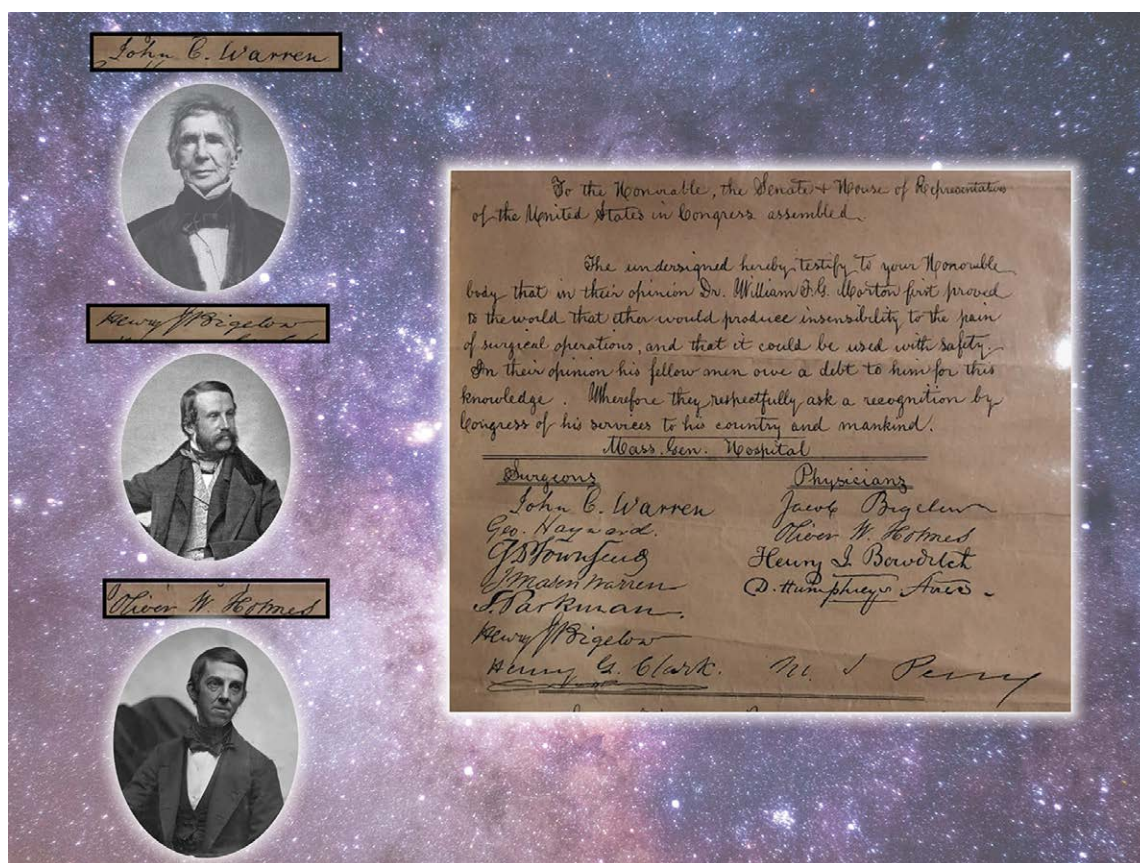 John C. Warren
Henry J Bigelow
Oliver W. Holmes
To the Honorable, the Senate + House of Representatives
of the United States in Congress assembled.
The undersigned hereby testify to your Honorable
body that in their opinion Dr. William T. G. Morton first proved
to the world that ether would produce insensibility to the pain
of surgical operations, and that it could be used with safety.
In their opinion his fellow men owe a debt to him for this
knowledge. Wherefore they respectfully ask a recognition by
Congress of his services to his country and mankind.
Mass. Gen. Hospital
Surgeons
John C. Warren
Geo. Hayward.
Townsend
Mason Warren
S. Parkman.
Henry J Bigelow
Henry G. Clark.
Physicians
Jacob Bigelow
Oliver W. Holmes
Henry I. Bowditch
D. Humphreys
M. S Perry